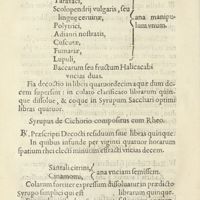 Taraxaci,
Scolopendrij vulgaris, seu
linguę ceruinæ,
Polytrici,
Adianti nostratis,
Cuscutæ,
Fumariæ,
Lupuli,
ana manipu
lum vnum.
Baccarum seu fructum Halicacabi
vncias duas.
Fia decoctio in libris quatuordecim aquæ dum
decem supersint: in colato clarificato librarum quin-
que dissolue, & coque in Syrupum Sacchari optimi
libras quatuor.
Syrupus de Cichorio compositus cum Rheo.
℞. Præscripti Decocti residuum siue libras quinque.
In quibus infunde per viginti quatuor horarum
spatium rhei electi minutim resecti vncias decem.
Santali citrini,
Cinamomi,
ana vnciam semissem.
Colarum fortiter expressum dissoluatur in prædicto
Syrupo simplici qui est librarum quinque.